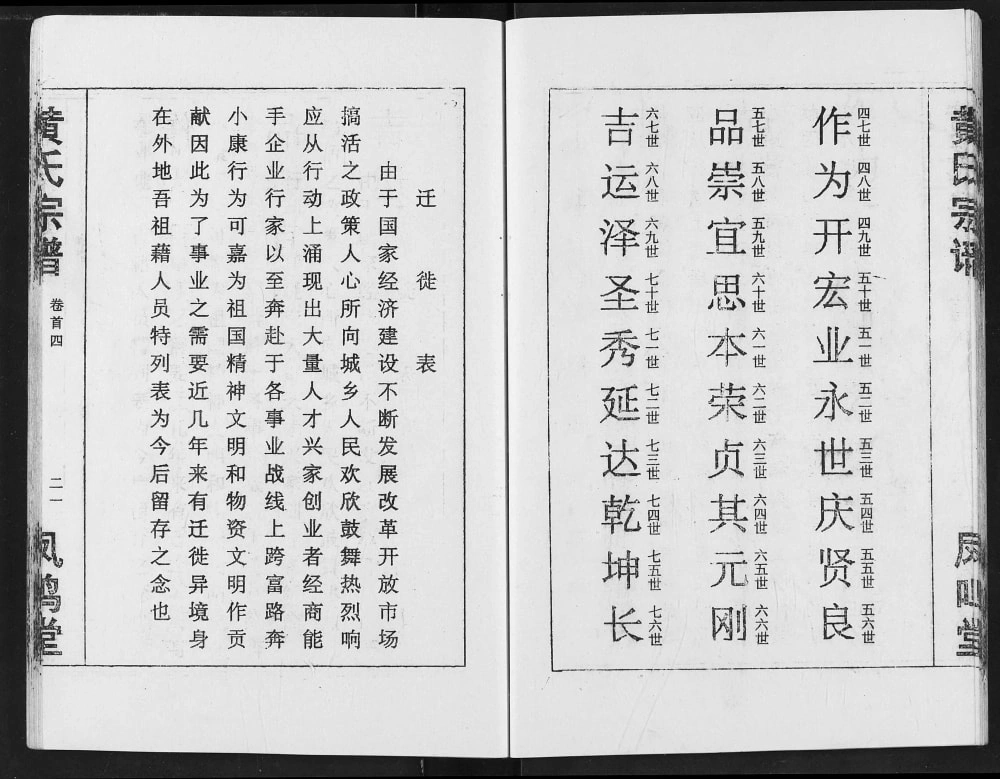 黄氏宗谱
凤鸣堂
作 四七世 为 四八世 开 四九世 宏 五十世 业 五一世 永 五二世 世 五三世 庆 五四世 贤 五五世 良 五六世
品 五七世 崇 五八世 宜 五九世 思 六十世 本 六一世 荣 六二世 贞 六三世 其 六四世 元 六五世 刚 六六世
吉 六七世 运 六八世 泽 六九世 圣 七十世 秀 七一世 延 七二世 达 七三世 乾 七四世 坤 七五世 长 七六世
迁徙表
由于国家经济建设不断发展改革开放市场
搞活之政策人心所向城乡人民欢欣鼓舞热烈响
应从行动上涌现出大量人才兴家创业者经商能
手企业行家以至奔赴于各事业战线上跨富路奔
小康行为可嘉为祖国精神文明和物资文明作贡
献因此为了事业之需要近几年来有迁徙异境身
在外地吾祖藉人员特列表为今后留存之念也
黄氏宗谱
卷首四
二一
凤鸣堂